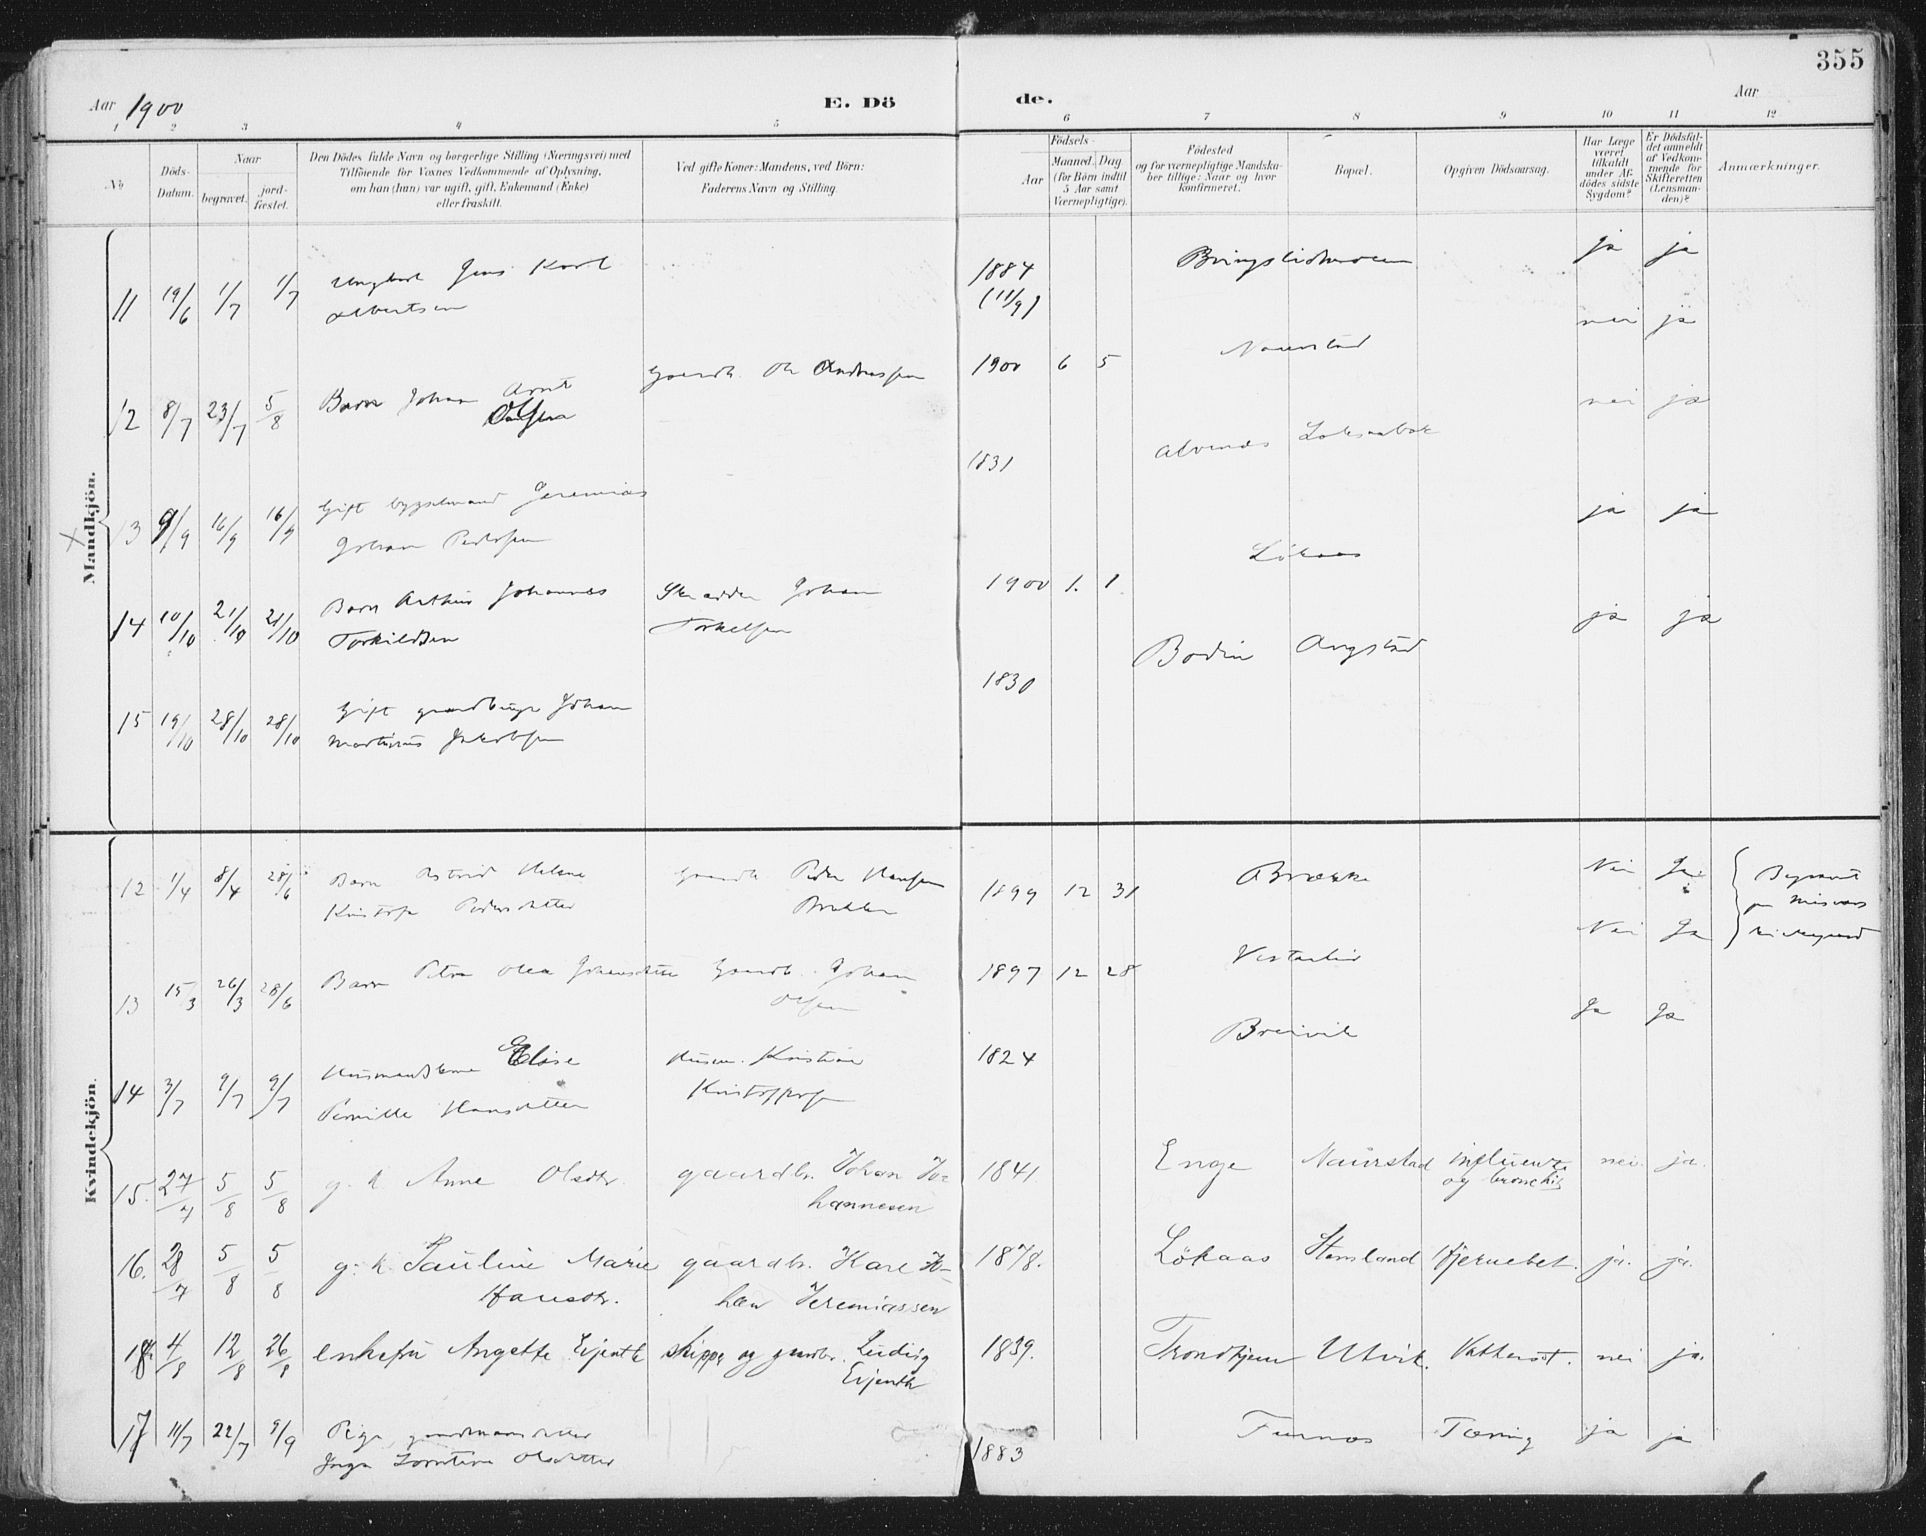 355
Aar 1900
E. Dö
de.
Aar
1 2 3 4 5 6 7 8 9 10 11 12
No
Döds-Datum.
Naar
begravet.
jord-fæstet.
Den Dödes fulde Navn og borgerlige Stilling (Næringsvei) med
Tilföiende for Voxnes Vedkommende af Oplysning,
om han (hun) var ugift, gift, Enkemand (Enke)
eller fraskilt.
Ved gifte Koner: Mandens, ved Börn:
Faderens Navn og Stilling.
Födsels-
Aar
Maaned. Dag
(for Börn indtil
5 Aar samt
Værnepligtige).
Födested
og for værnepligtige Mandska-
ber tillige: Naar og hvor
konfirmeret.
Bopæl.
Opgiven Dödsaarsag.
Har Læge
været
tilkaldt
under Af-
dödes sidste
Sygdom?
Er Dödsfal-
det anmeldt
af Vedkom-
mende for
Skifteretten
(Lensman-
den)?
Anmærkninger.
Mandkjön.
11 19/6 1/7 1/7 Ungkarl Jens Karl 1884 ja ja
Albertsen (11/9)
12 8/7 23/7 5/8 Barn Johan Arnt Gaardb. Ole Andreassen 1900 6 5 Naurstad nei ja
Olsen
13 9/9 16/9 16/9 Gift bygselmand Jeremias 1831 Alvenes nei ja
Johan Pedersen
14 10/10 21/10 21/10 Barn Arthur Johannes Skrædder Johan 1900 1. 1. Løkaas ja ja
Torkildsen Torkelsen
15 19/10 28/10 28/10 Gift gaardbruger Johan 1830 Bodin ja ja
Martinus Jakobsen
Kvindekjön.
12 1/4 8/4 28/6 Barn Astrid Helene Gaardb. Peder Hansen 1899 12 31 Nei Ja Begravet
Kristofa Pedersdatter paa Misvær
13 15/3 26/3 28/6 Barn Petra Olea Johansdatter Gaardb. Johan 1897 12 28 Vesterlid Nei Ja
Olsen
14 3/7 9/7 9/7 Husmandskone Elise Husm. Kristian 1824 Breivik Ja Ja
Pernille Hansdatter Kristoffersen
15. 27/7 5/8 5/8 g. k Anne Olsdtr. gaardbr. Johan Jo- 1841. Enge Naurstad influenza nei. ja.
hannesen og bronchit
16. 28/7 5/8 5/8 g. k. Pauline Marie gaardbr. Karl Jo- 1878. Løkaas Stemland Hjernebet. ja. ja.
Hansdtr. han Jeremiassen
18. 4/8 12/8 26/8 enkefru Angette Ejenth skipper og gaardbr. Ludvig 1839. Trondhjem Utvik. nei ja.
Ejenth
17 11/7 22/7 9/9 Pige, gaardmandsdatter 1883 Furnes Tæring ja ja
Inga Lorntine Olsdatter